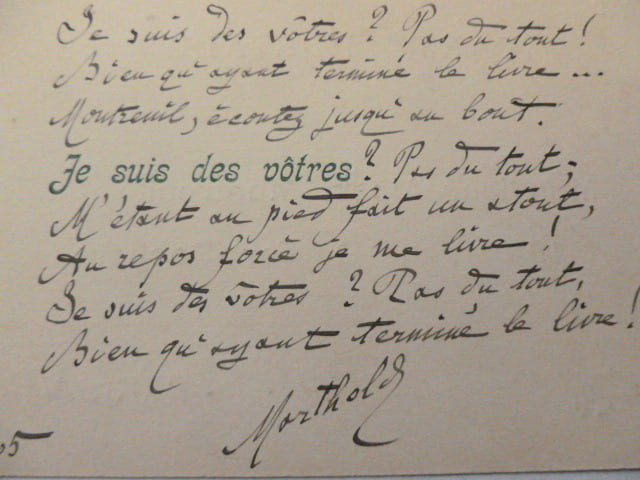 Je suis des vôtres ? Pas du tout !
Bien qu'ayant terminé le livre ...
Montreuil, écoutez jusqu'au bout.
Je suis des vôtres ? Pas du tout ;
M'étant au pied fait un atout,
Au repos forcé je me livre !
Je suis des vôtres ? Pas du tout,
Bien qu'ayant terminé le livre !
Marthold
05